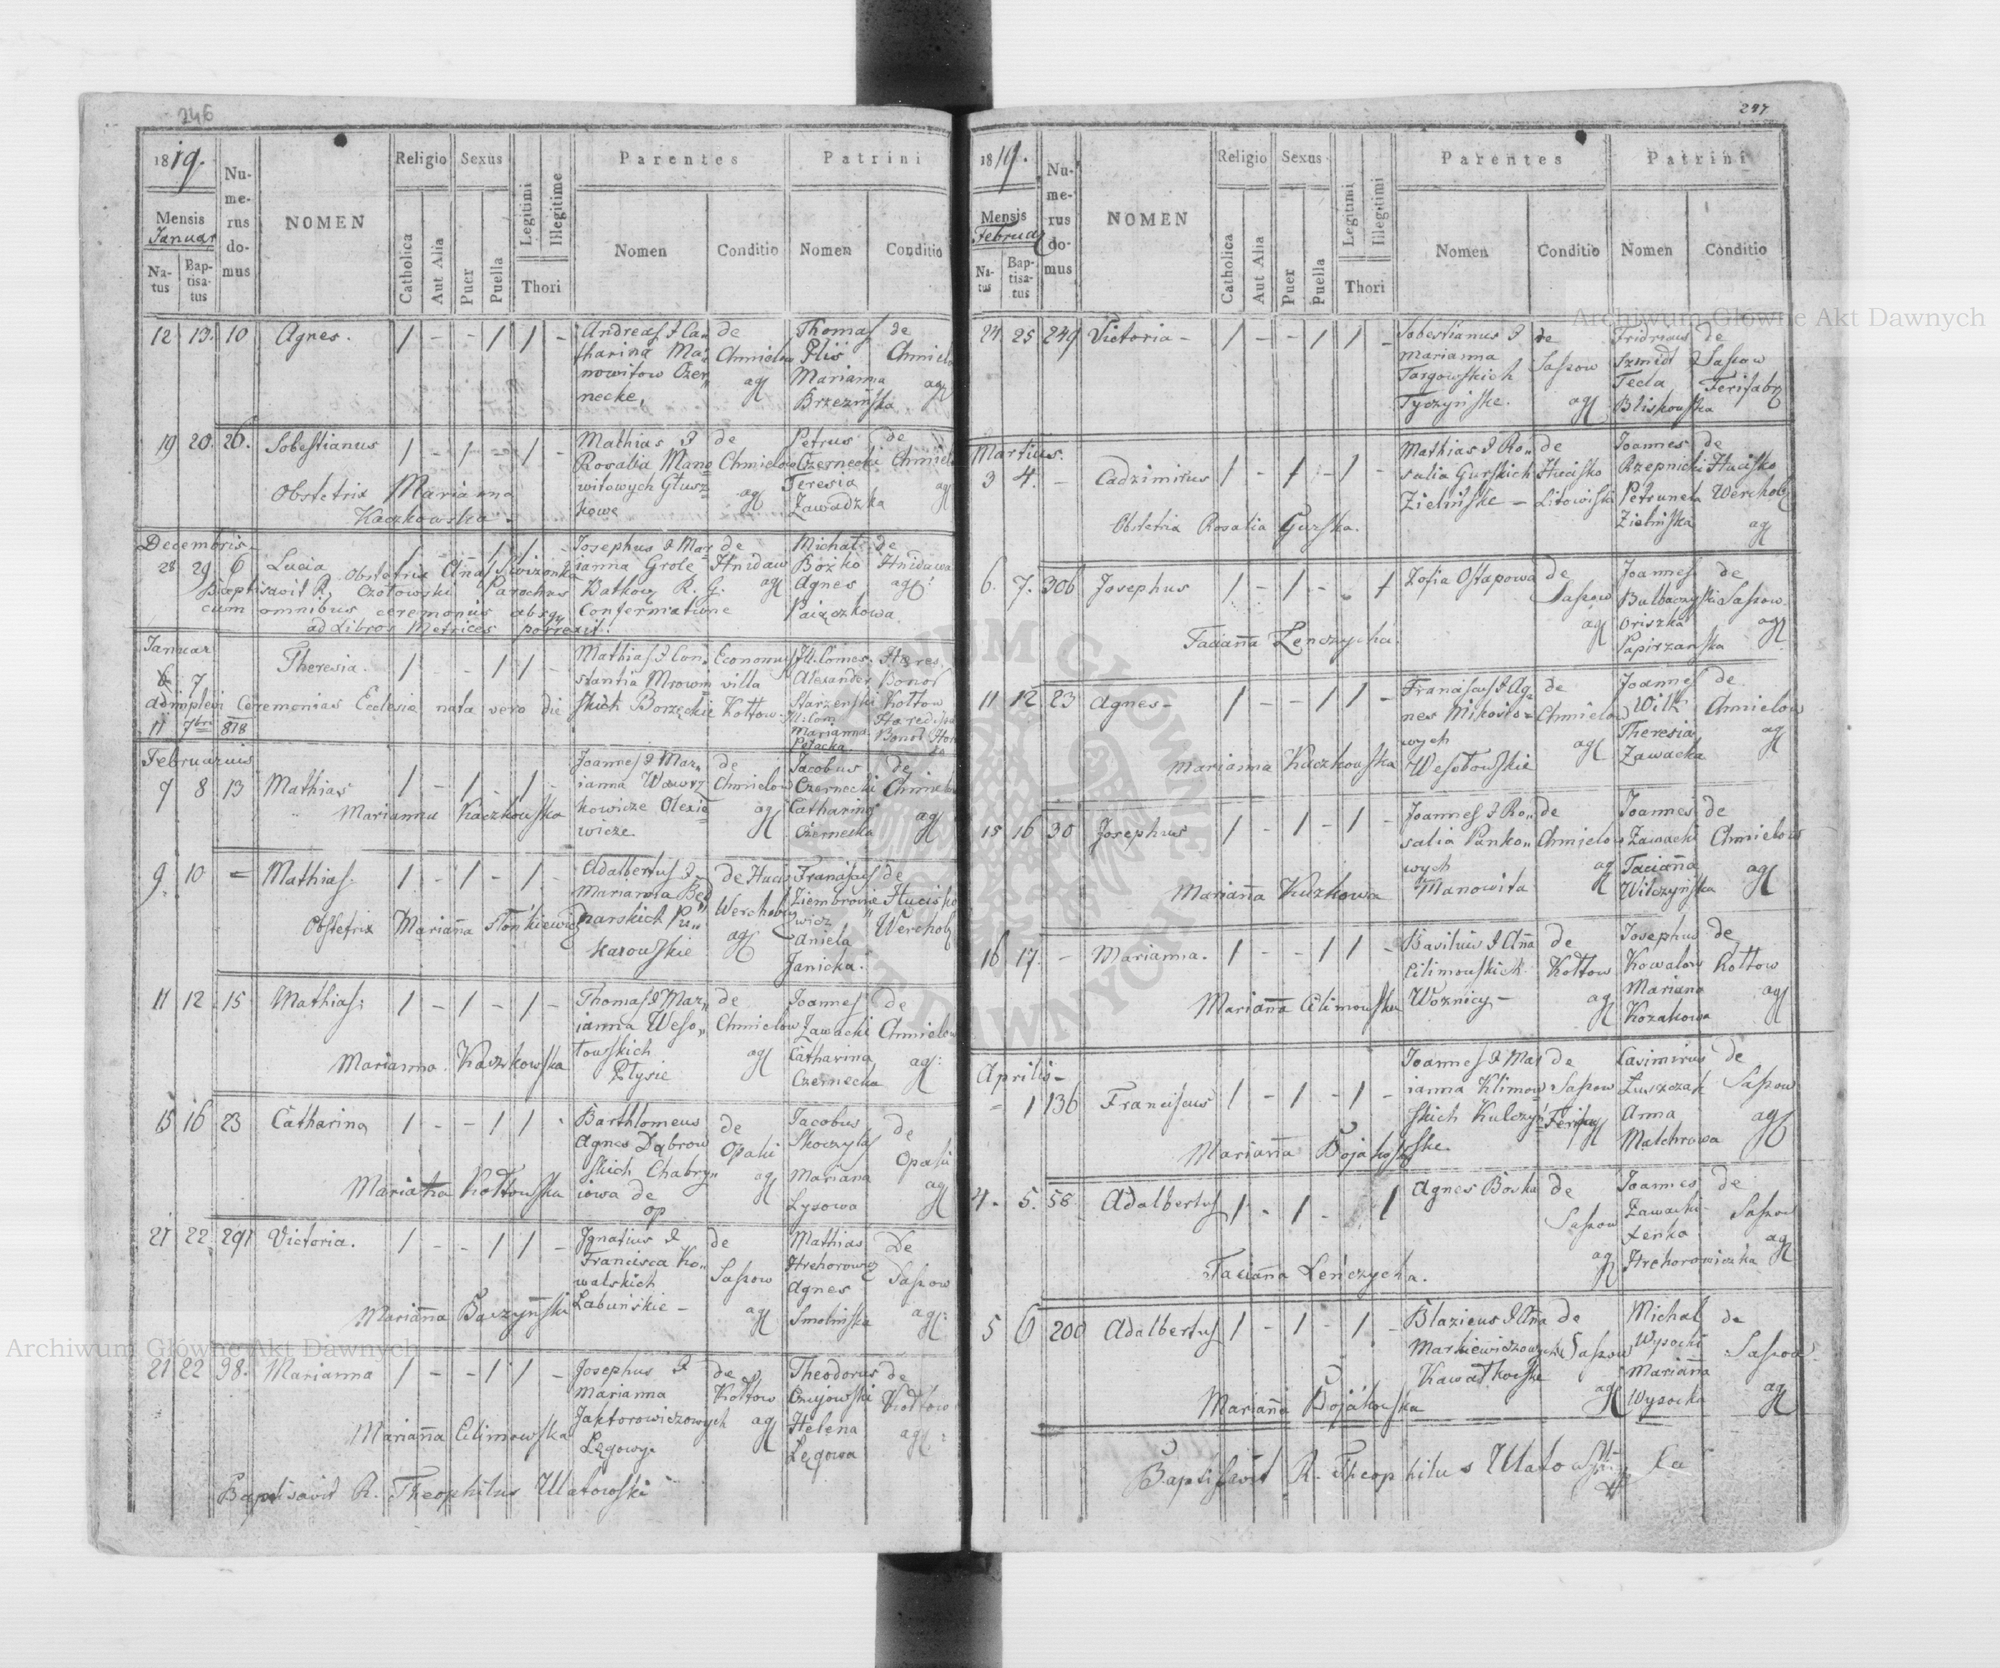 246
1819.
Mensis
Januar
Na-
tus
Bap-
tisa-
tus
Nu-
me-
rus
do-
mus
NOMEN
Religio
Catholica
Aut Alia
Sexus
Puer
Puella
Legitimi
Illegitime
Thori
Parentes
Nomen
Conditio
Patrini
Nomen
Conditio
12 13. 10 Agnes. 1 - - 1 1 -
Andreas & Ca=
tharina Ma=
nowitow Czer=
necke,
de
Chmielow
ag
Thomas
Plis
Marianna
Brzezińska
de
Chmielo
ag
19 20. 26. Sobestianus 1 - 1 - 1 -
Obstetrix Marianna
Kaczkowska.
Mathias &
Rosalia Mano=
witowych Głusz=
kowe
de
Chmielow
ag
Petrus
Czernecki
Teresia
Zawadzka
de
Chmiel
ag
Decembris
28 29 6 Lucia
Obstetrix
Baptisavit R. Czołowski Parochus
cum omnibus ceremoniis absq
ad Libros Metrices porrexit.
Josephus & Mar=
ianna Grole
Watkow R. G.
Confermatione
de
Hnidawa
ag
Michał
Bozko
Agnes
Paiączkowa
de
Hnidawa
ag
Januar
6 7 Theresia. 1 - - 1 1 -
adimplevi Ceremonias Ecclesia nata vero die
11 7bri 818
Mathias & Con=
stantia Mrowin
skich Borzęckie
Economus
villa
Kołtow
Ill. Comes
Alexander
Starzenski
Ill. Com
Marianna
Potocka
Hæres
Bonor
Kołtow
Februarius
7 8 13 Mathias 1 - 1 - 1 -
Marianna Kaczkowska
Joannes & Mar=
ianna Wawrz
kowicze Olexie=
wicze
de
Chmielow
ag
Jacobus
Czernecki
Catharina
Czernecka
de
Chmielo
ag
9. 10 - Mathias 1 - 1 - 1 -
Obstetrix Mariana Słonkiewicz
Adalbertus &
Marianna Bed
narskich Pu=
karowskie
de Hucis
Werchobuz
ag
Franciscus
Ziembrowie
wicz
Aniela
Janicka.
de
Hucisko
Werchob
11 12 15 Mathias 1 - 1 - 1 -
Marianna Kaczkowska
Thomas & Mar=
ianna Weso=
łowskich
Płysie
de
Chmielow
ag
Joannes
Zawacki
Catharina
Czernecka
de
Chmielow
ag:
15 16 23 Catharina 1 - - 1 1 -
Marianna Kołtowska
Barthlomeus
Agnes Dąbrow
skich Chabry=
iowa de
op
de
Opaki
ag
Jacobus
Skoczylas
Mariana
Lysowa
de
Opaki
ag
21 22 291 Victoria. 1 - - 1 1 -
Marianna Baczyńska
Ignatius &
Francisca Ko=
walskich
Łabuńskie -
de
Sassow
ag
Mathias
Hrehorowicz
Agnes
Smolińska
De
Sassow
ag:
21 22 98. Marianna 1 - - 1 1 -
Marianna Climowska
Josephus &
Marianna
Jaktorowiczowych
Lęgowy
de
Kołtow
ag
Theodorus
Czujowski
Helena
Lęgowa
de
Kołtow
ag:
Baptisavit R. Theophilus Ulatowski
247
1819.
Mensis
Februar
Na-
tus
Bap-
tisa-
tus
Nu-
me-
rus
do-
mus
NOMEN
Religio
Catholica
Aut Alia
Sexus
Puer
Puella
Legitimi
Illegitimi
Thori
Parentes
Nomen
Conditio
Patrini
Nomen
Conditio
24 25 249 Victoria - 1 - - 1 1 -
Sobestianus &
Marianna
Targowskich
Tyczyńske.
de
Sassow
ag
Fridricus
Szmidt &
Tecla
Bliskowska
de
Sassow
Martius.
3 4. - Cadzimirus 1 - 1 - 1 -
Obstetrix Rosalia Gurska.
Mathias & Ro=
salia Gurskich
Zielińske -
de
Hucisko
Litowiska
Joannes
Rzepnicki
Petrunela
Zielińska
de
Hucisko
Werchob
ag
6. 7. 306 Josephus 1 - 1 - - 1
Tacianna Lenczycha.
Zofia Ostapowa
de
Sassow
ag
Joannes
Bulbaczyski
Oriszka
Papirzanska
de
Sassow
ag
11 12 23 Agnes - 1 - - 1 1 -
Marianna Kaczkowska
Franciscus & Ag=
nes Mikosio=
wych
Wesołowskie
de
Chmielow
ag
Joannes
Wilk
Theresia
Zawacka
de
Chmielow
ag
15 16 30 Josephus 1 - 1 - 1 -
Marianna Kuczkowa
Joannes & Ro=
salia Panko=
wych
Manowita
de
Chmielow
ag
Joannes
Zawacki
Tacianna
Wilczyńska
de
Chmielow
ag
16 17. - Marianna. 1 - - 1 1 -
Marianna Climowska
Basilius & Anna
Climowskich
Woznicy -
de
Kołtow
ag
Josephus
Kowalow
Mariana
Kozakowa
de
Kołtow
ag
Aprilis -
- 1 136 Franciscus 1 - 1 - 1 -
Marianna Bojakowska
Joannes & Mar
ianna Klimow
skich Kulczyń
ske
de
Sassow
Casimirus
Łuszczak
Anna
Malchrowa
de
Sassow
ag
4. 5. 58 Adalbertus 1 - 1 - 1
Tacianna Lenczycha.
Agnes Boska
de
Sassow
ag
Joannes
Zawacki
Xenka
Hrehorowiczka
de
Sassow
ag
5 6 200 Adalbertus 1 - 1 - 1 -
Marianna Bojakowska
Blazieus & Anna
Markiewiczowych
Kawałkowske
de
Sassow
ag
Michał
Wysocki
Marianna
Wysocka
de
Sassow
ag
Baptisavit R. Theophilus Ulatowski
Archiwum Główne Akt Dawnych
Archiwum Główne Akt Dawnych